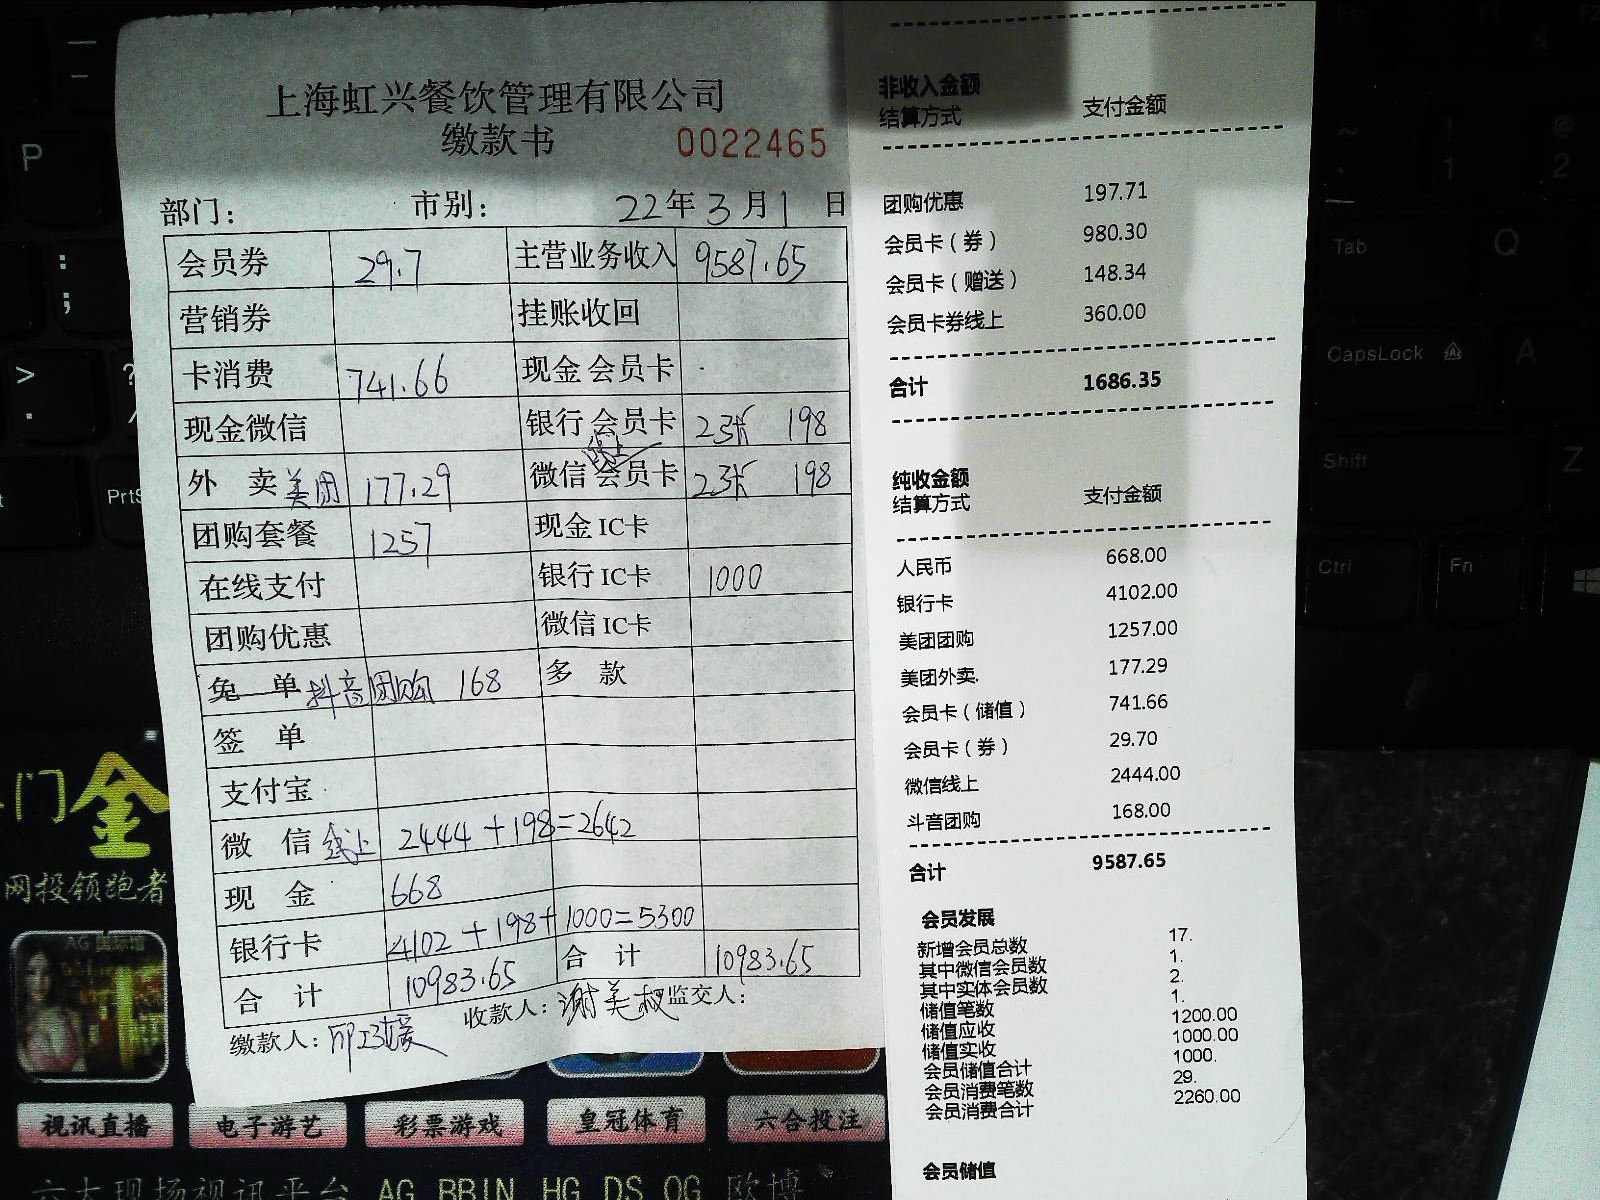 上海虹兴餐饮管理有限公司
缴款书 0022465
部门： 市别： 22年3月1日
会员券 29.7 主营业务收入 9587.65
营销券 挂账收回
卡消费 741.66 现金会员卡
现金微信 银行会员卡 2张 198
外卖美团 177.29 微信线上会员卡 2张 198
团购套餐 1257 现金IC卡
在线支付 银行IC卡 1000
团购优惠 微信IC卡
免单 抖音团购 168 多款
签单
支付宝
微信线上 2444+198=2642
现金 668
银行卡 4102+198+1000=5300
合计 10983.65 合计 10983.65
缴款人： 收款人： 监交人：
非收入金额
结算方式 支付金额
团购优惠 197.71
会员卡（券） 980.30
会员卡（赠送） 148.34
会员卡券线上 360.00
合计 1686.35
纯收金额
结算方式 支付金额
人民币 668.00
银行卡 4102.00
美团团购 1257.00
美团外卖. 177.29
会员卡（储值） 741.66
会员卡（券） 29.70
微信线上 2444.00
斗音团购 168.00
合计 9587.65
会员发展
新增会员总数 17.
其中微信会员数 1.
其中实体会员数 2.
储值笔数 1.
储值应收 1200.00
储值实收 1000.00
会员储值合计 1000.
会员消费笔数 29.
会员消费合计 2260.00
会员储值
P
:
;
>
.
?
/
PrtS
~
!
1
@
2
Tab
Q
CapsLock
A
Shift
Z
Ctrl
Fn
门金
网投领跑者
AG 国际馆
视讯直播 电子游艺 彩票游戏 皇冠体育 六合投注
六大现场视讯平台 AG BBIN HG DS OG 欧博